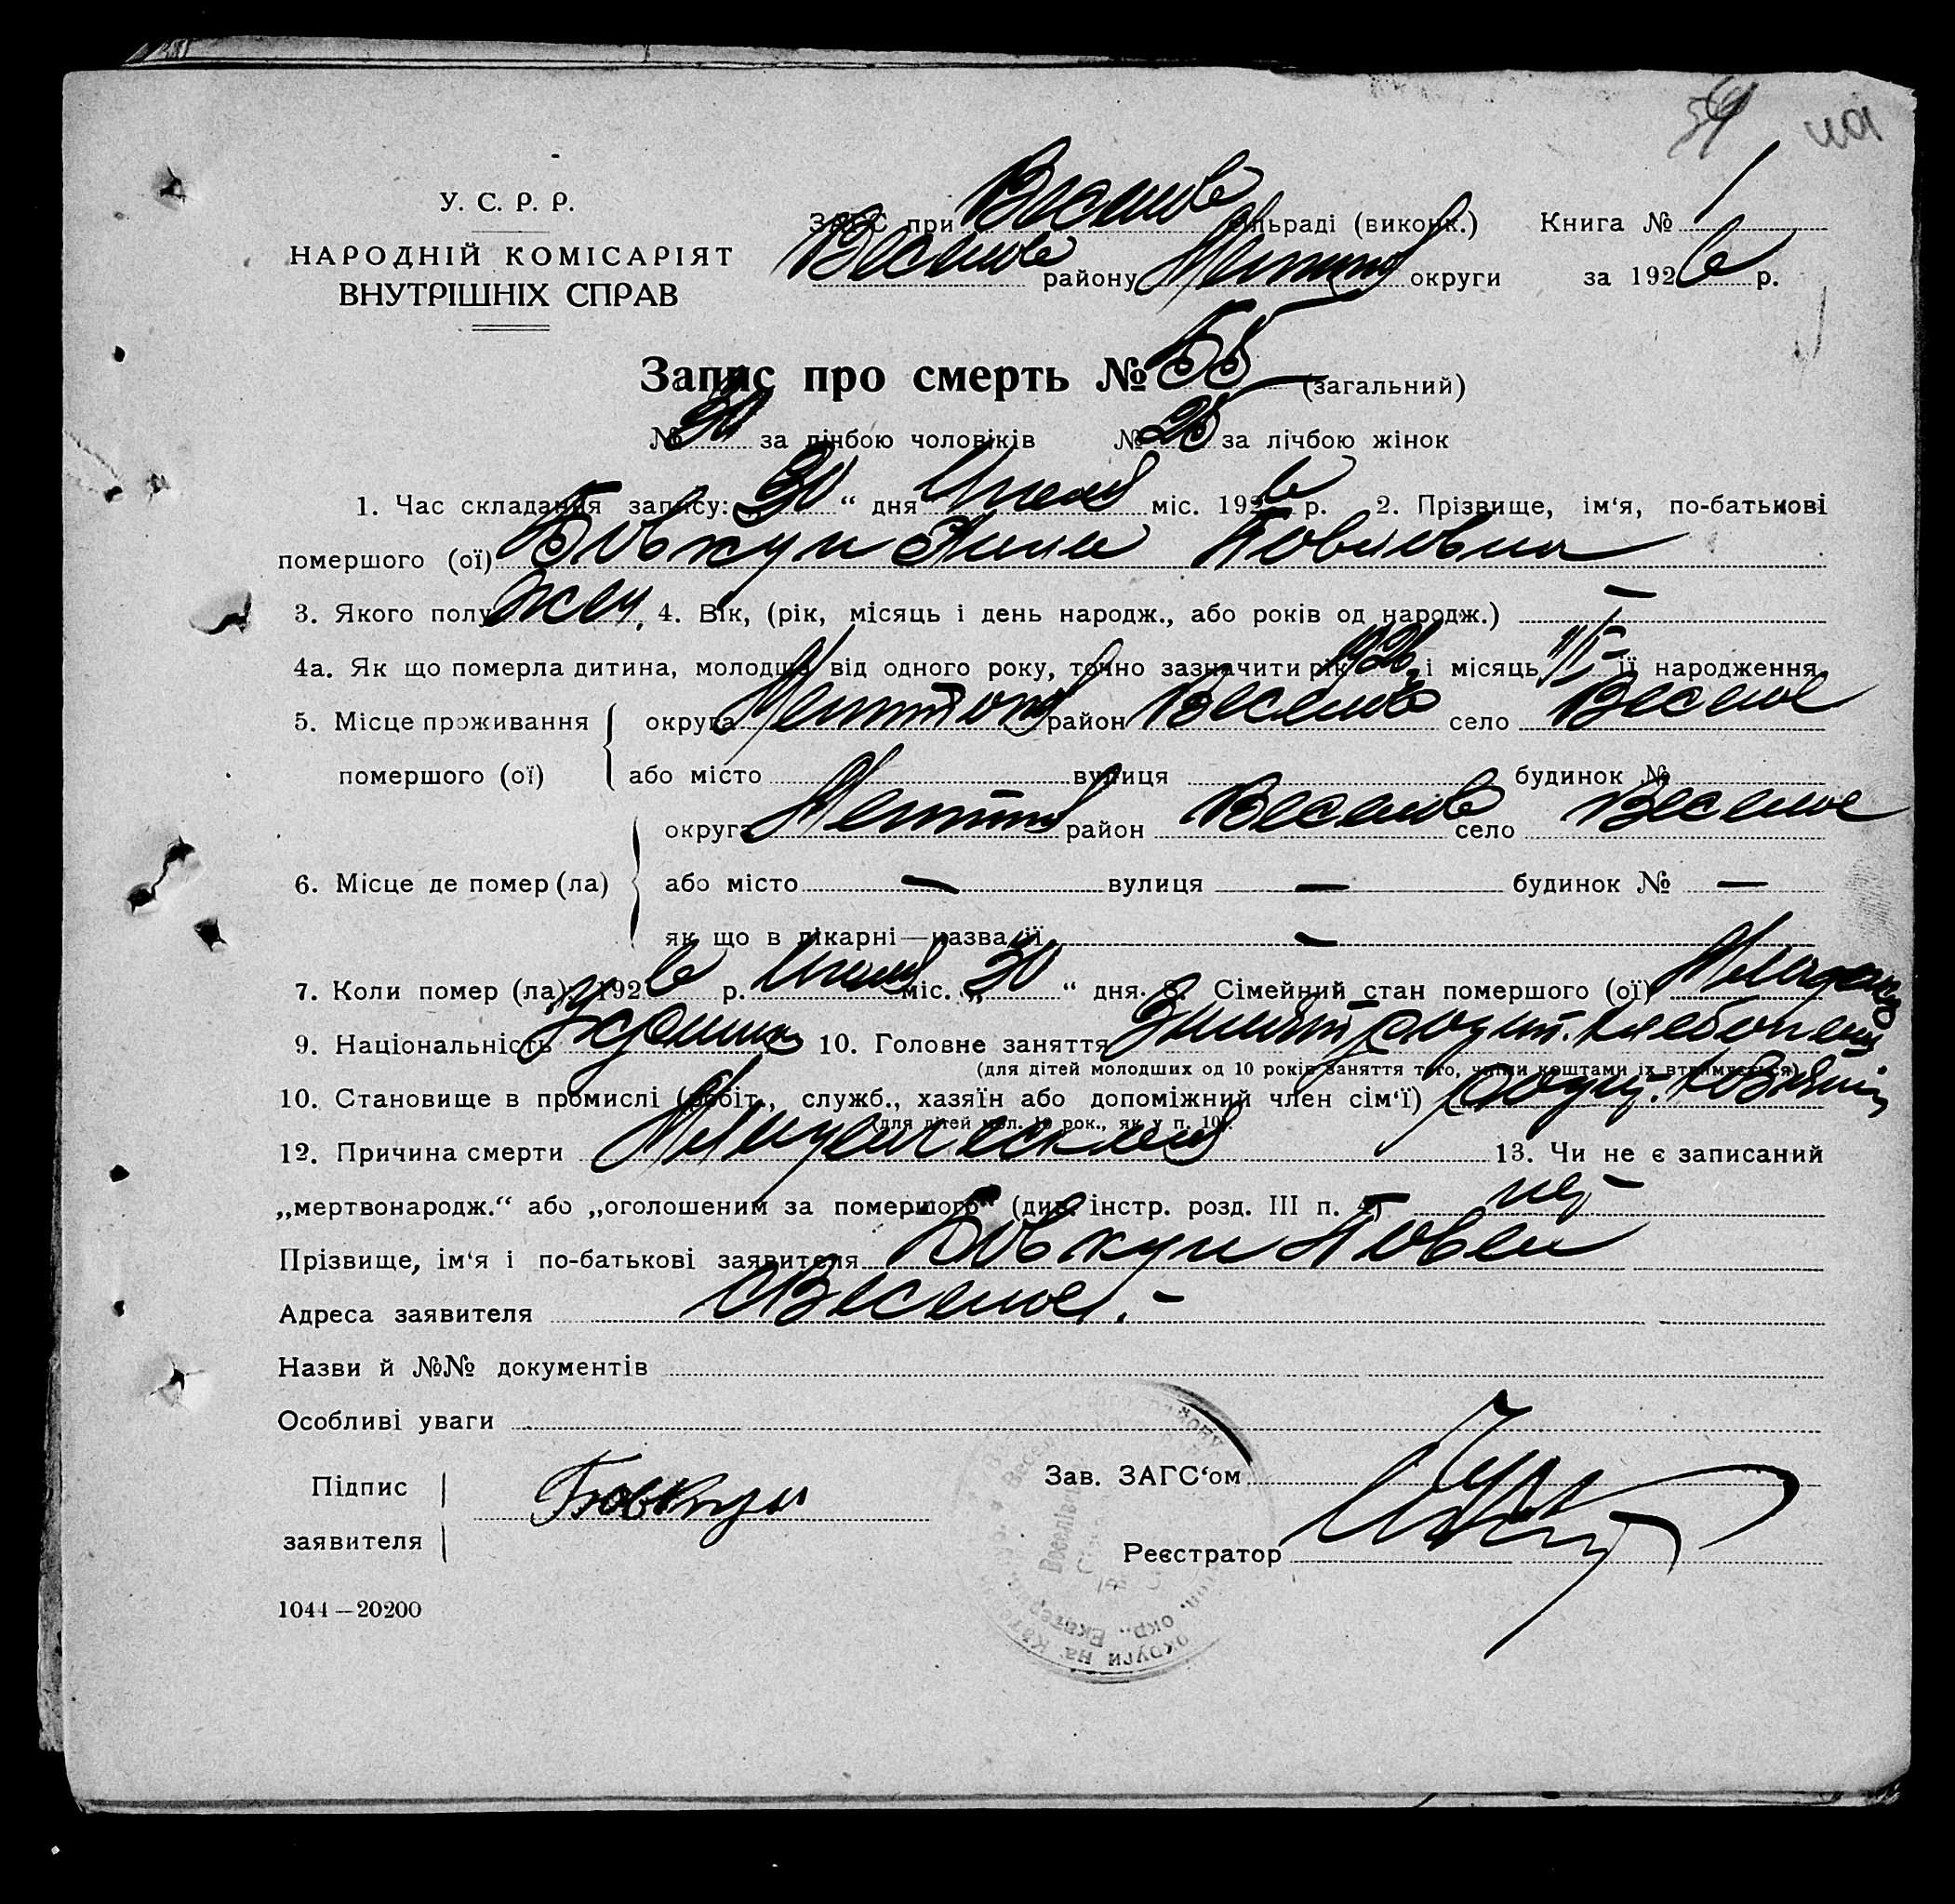 59
У. С. Р. Р.
НАРОДНІЙ КОМІСАРІЯТ
ВНУТРІШНІХ СПРАВ
ЗАГС при Веселов сільраді (виконк.) Книга № 1
Веселов району Мелитоп округи за 1926 р.
Запис про смерть № 55 (загальний)
№ 30 за лічбою чоловіків № 25 за лічбою жінок
1. Час складання запису: „30“ дня Июля міс. 1926 р. 2. Прізвище, ім‘я, по-батькові
помершого (ої) Бовкун Анна Повловна
3. Якого полу жен. 4. Вік, (рік, місяць і день народж., або років од народж.) —
4а. Як що померла дитина, молодша від одного року, точно зазначити рік 1926 і місяць її народження
5. Місце проживання округа Мелитоп район Веселов село Веселое
помершого (ої) або місто вулиця будинок №
округа Мелитоп район Веселов село Веселое
6. Місце де помер (ла) або місто — вулиця — будинок № —
як що в лікарні—назва її —
7. Коли помер (ла): 1926 р. Июля міс. „30“ дня. 8. Сімейний стан помершого (ої)
9. Національність 10. Головне заняття
(для дітей молодших од 10 років заняття того, чиїми коштами їх втримується)
10. Становище в промислі (робіт., служб., хазяїн або допоміжний член сім‘ї)
(для дітей мол. 10 рок., як у п. 10).
12. Причина смерти 13. Чи не є записаний
„мертвонародж.“ або „оголошеним за помершого“ (див. інстр. розд. III п. 4) нет
Прізвище, ім‘я і по-батькові заявителя Бовкун Повел
Адреса заявителя Веселое.
Назви й №№ документів
Особливі уваги
Підпис
заявителя Бовкун
Зав. ЗАГС‘ом
Реєстратор
1044—20200